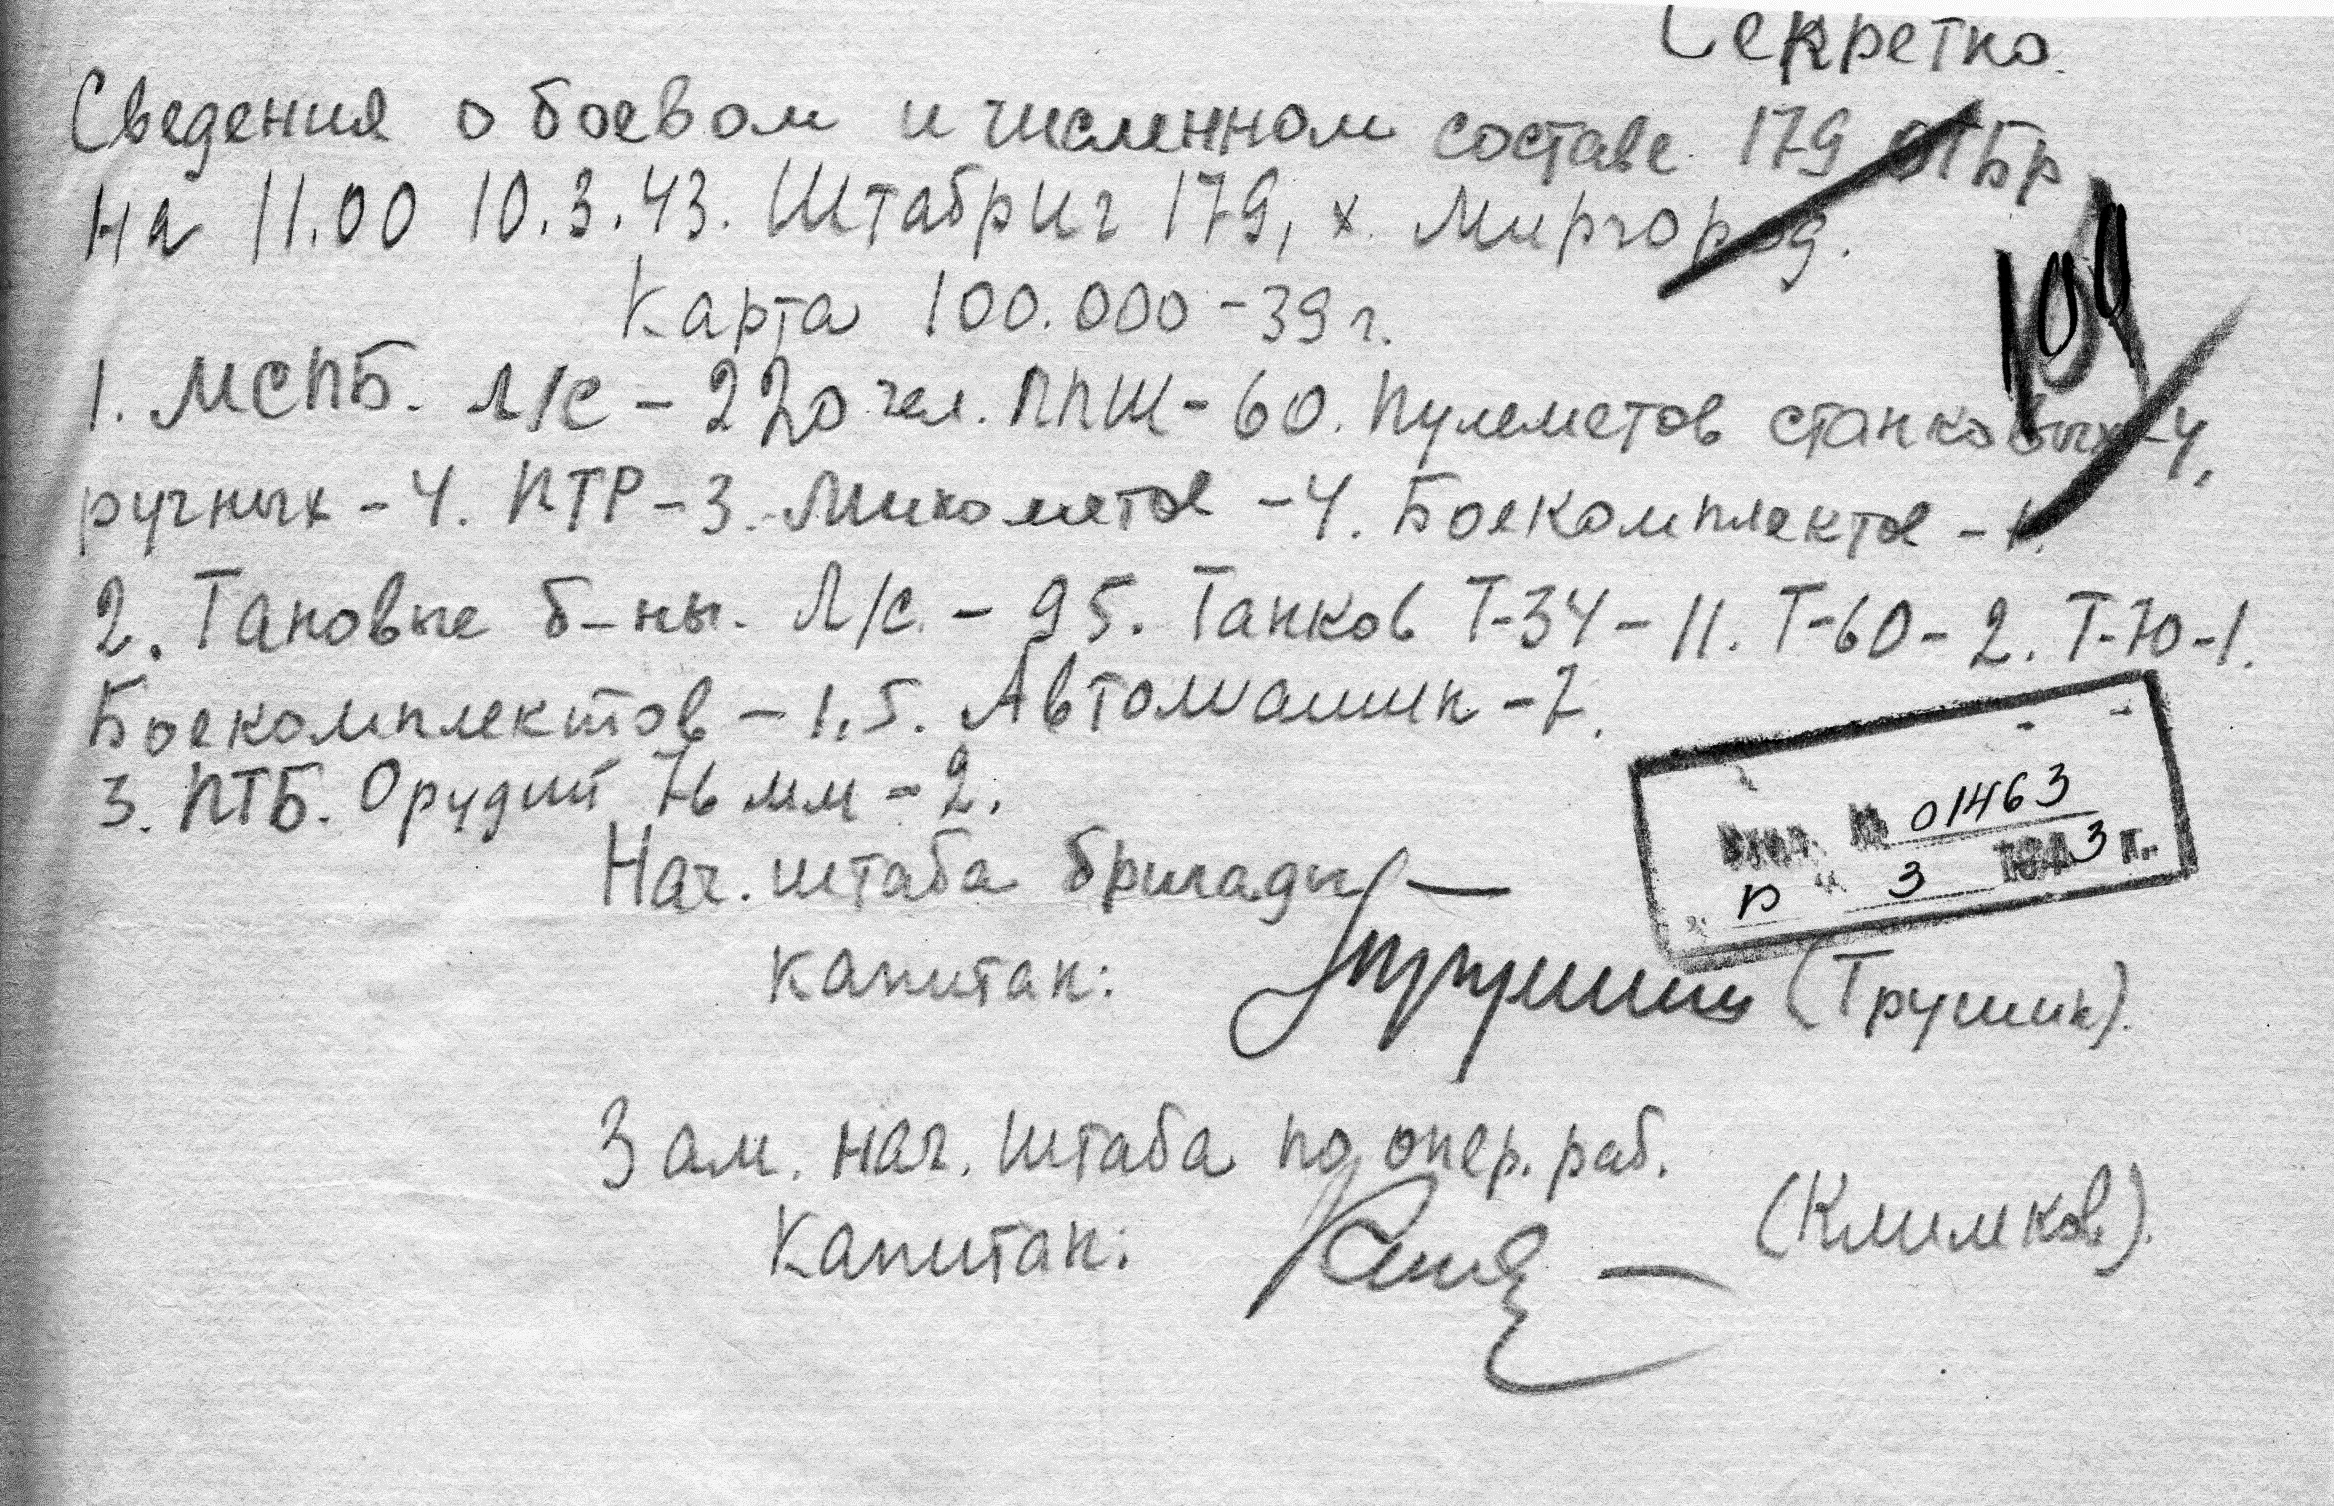 Секретно.
Сведения о боевом и численном составе 179 отбр
на 11.00 10.3.43. Штабриг 179, х. Миргород.
Карта 100.000-39г.
1. МСПБ. л/с - 220 чел. ППШ - 60. Пулеметов станковых - 4,
ручных - 4. ПТР - 3. Минометов - 4. Боекомплектов - 1.
2. Тановые б-ны. Л/с. - 95. Танков Т-34 - 11. Т-60 - 2. Т-70-1.
Боекомплектов - 1,5. Автомашин - 7.
3. ПТБ. Орудий 76 мм - 2.
№ 01463
3 1943 г.
Нач. штаба бригады
капитан: (Трушин).
Зам. нач. штаба по опер. раб.
Капитан: (Климков).